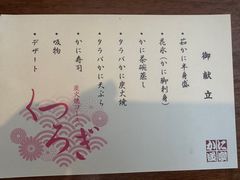 御献立
・茹かに半身盛
・花氷(かに脚刺身)
・かに茶碗蒸し
・タラバかに炭火焼
・タラバかに天ぷら
・かに寿司
・吸物
・デザート
炭火焼コース
くつろぎ